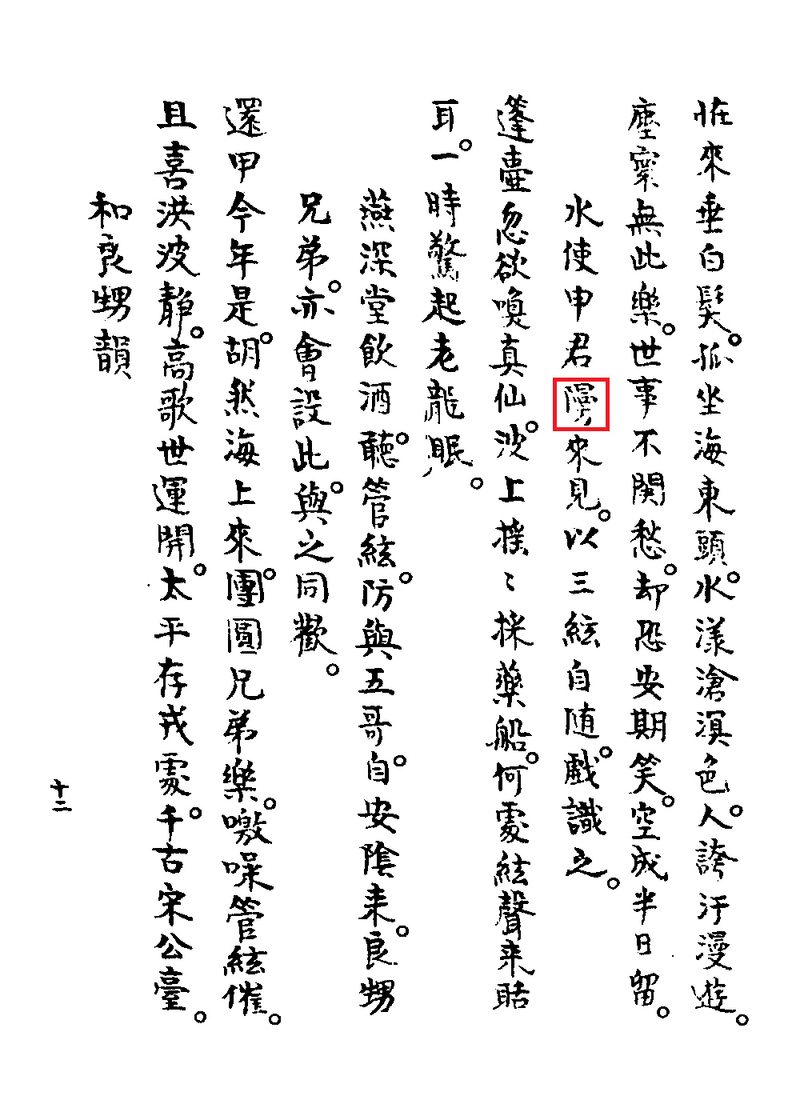 恠來垂白髮。孤坐海東頭。水漾滄溟色。人誇汗漫遊。
塵寰無此樂。世事不関愁。却恐安期笑。空成半日留。
水使申君來見。以三絃自随。戱識之。
蓬壷忽欲喚真仙。波上搖〻採藥船。何處絃聲来聒
耳。一時驚起老龍眠。
燕深堂飲酒聽。管絃防與五哥。自安陰来。良甥
兄弟。亦會設此。與之同歡。
還甲今年是。胡然海上來。團圓兄弟樂。噭噪管絃催。
且喜洪波静。高歌世運開。太平存戎處。千古宋公臺。
和良甥韻
十二